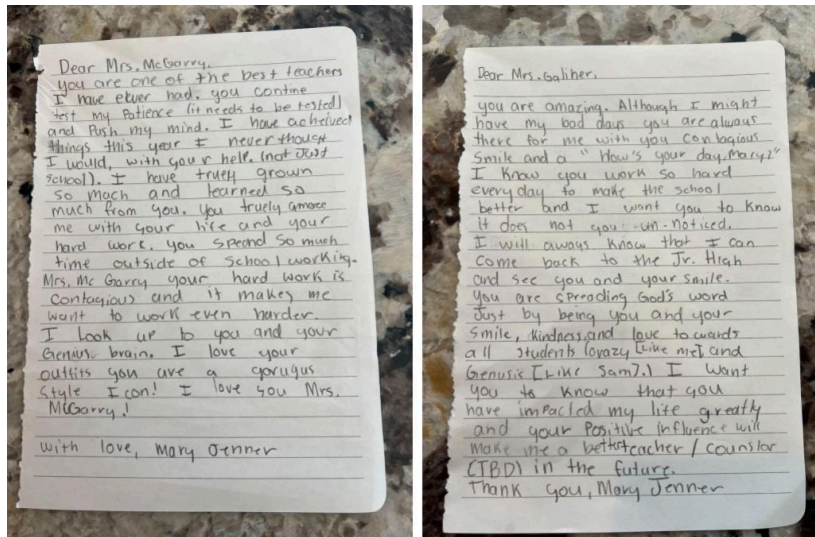 Dear Mrs. McGarry,
you are one of the best teachers
I have ekver had. you contine
test my Patience (it needs to be tested)
and Push my mind. I have acheived
things this year I never though
I would, with your help. (not Just
school). I have truely grown
so mach and learned so
much from you. You truely amaze
me with your life and your
hard work. you spend so much
time outside of School working.
Mrs. Mc Garry your hard work is
contagious and it makes me
want to work even harder.
I Look up to you and your
Genius brain. I love your
outfits you are a gorugus
Style Icon! I love you Mrs.
McGarry!
with love, Mary Jenner
Dear Mrs. Galiher,
you are amazing. Although I might
have my bad days you are always
there for me with you contagious
Smile and a "How's your day, Mary?"
I Know you work so hard
everyday to make the school
better and I want you to Know
it does not you un-noticed.
I will always know that I can
come back to the Jr. High
and see you and your smile.
You are spreading God's word
Just by being you and your
Smile, Kindness, and love towards
all students (crazy [Like me] and
Genusis [Like Sam].) I want
you to know that you
have impacted my life greatly
and your Positive influence will
make me a better teacher / counslor
(TBD) in the future.
Thank you, Mary Jenner